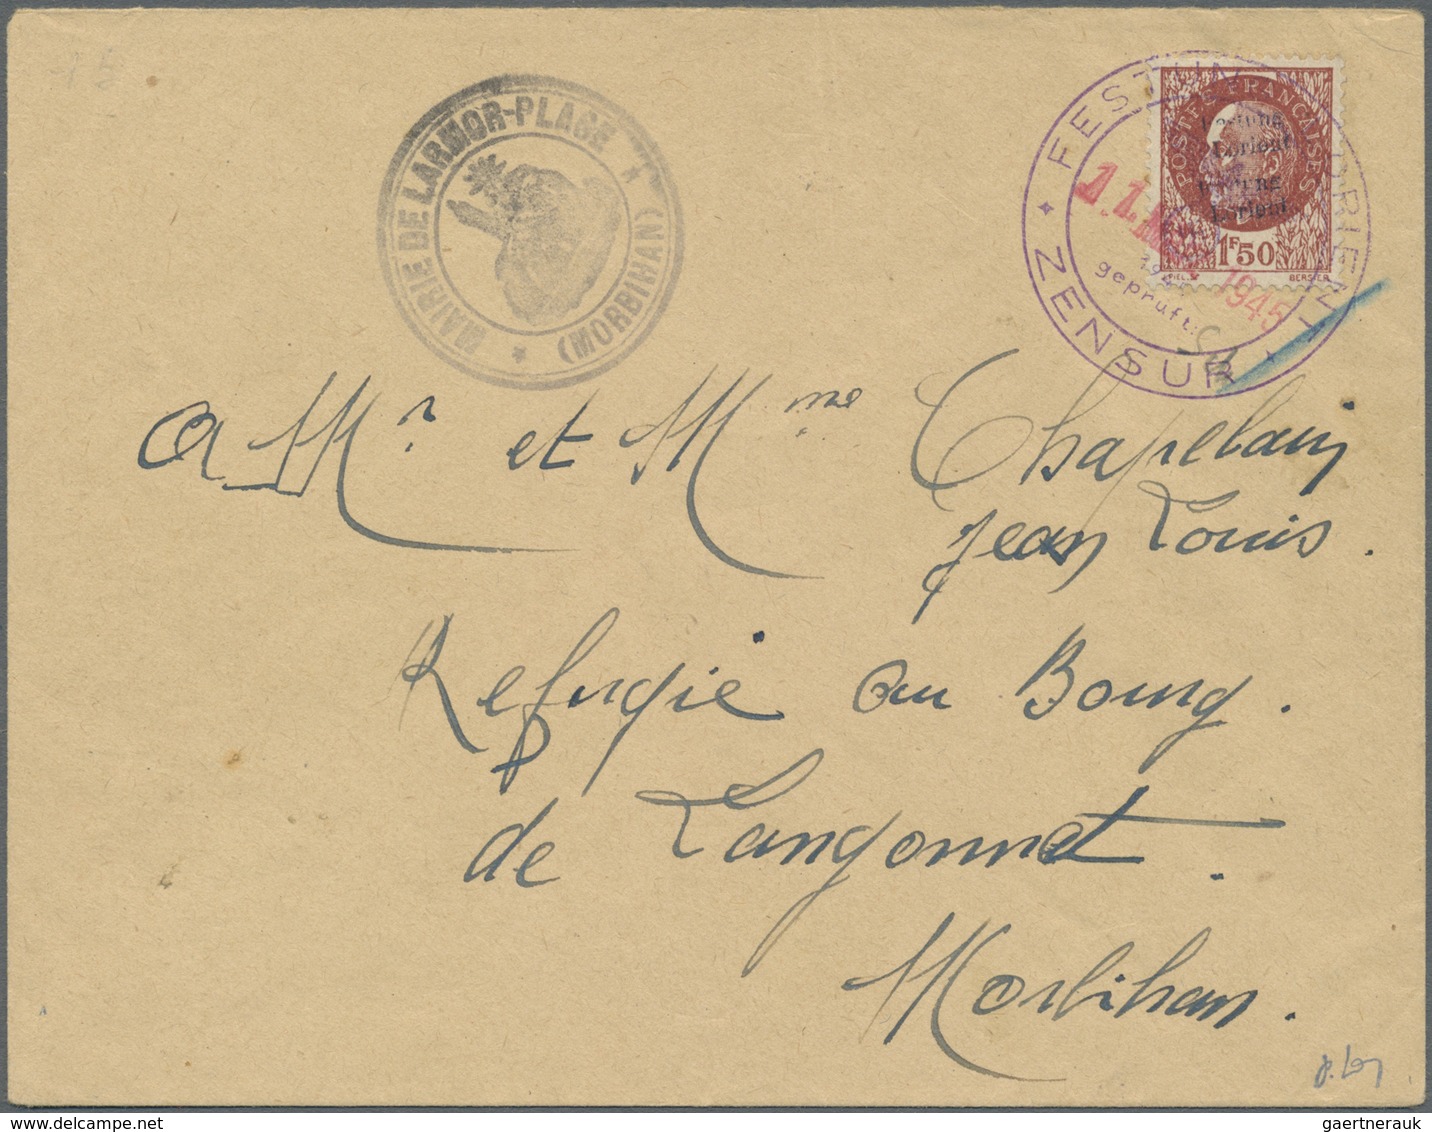 MAIRIE DE LARMOR-PLAGE
(MORBIHAN)
FESTUNG LORIENT
ZENSUR
geprüft:
11. 1945
POSTES FRANÇAISES
Lorient
Lorient
1F50
BERSIER
A Mr et Mme Chapelain
Jean Louis.
Refugié au Bourg.
de Langonnet.
Morbihan.
gaertnerauk